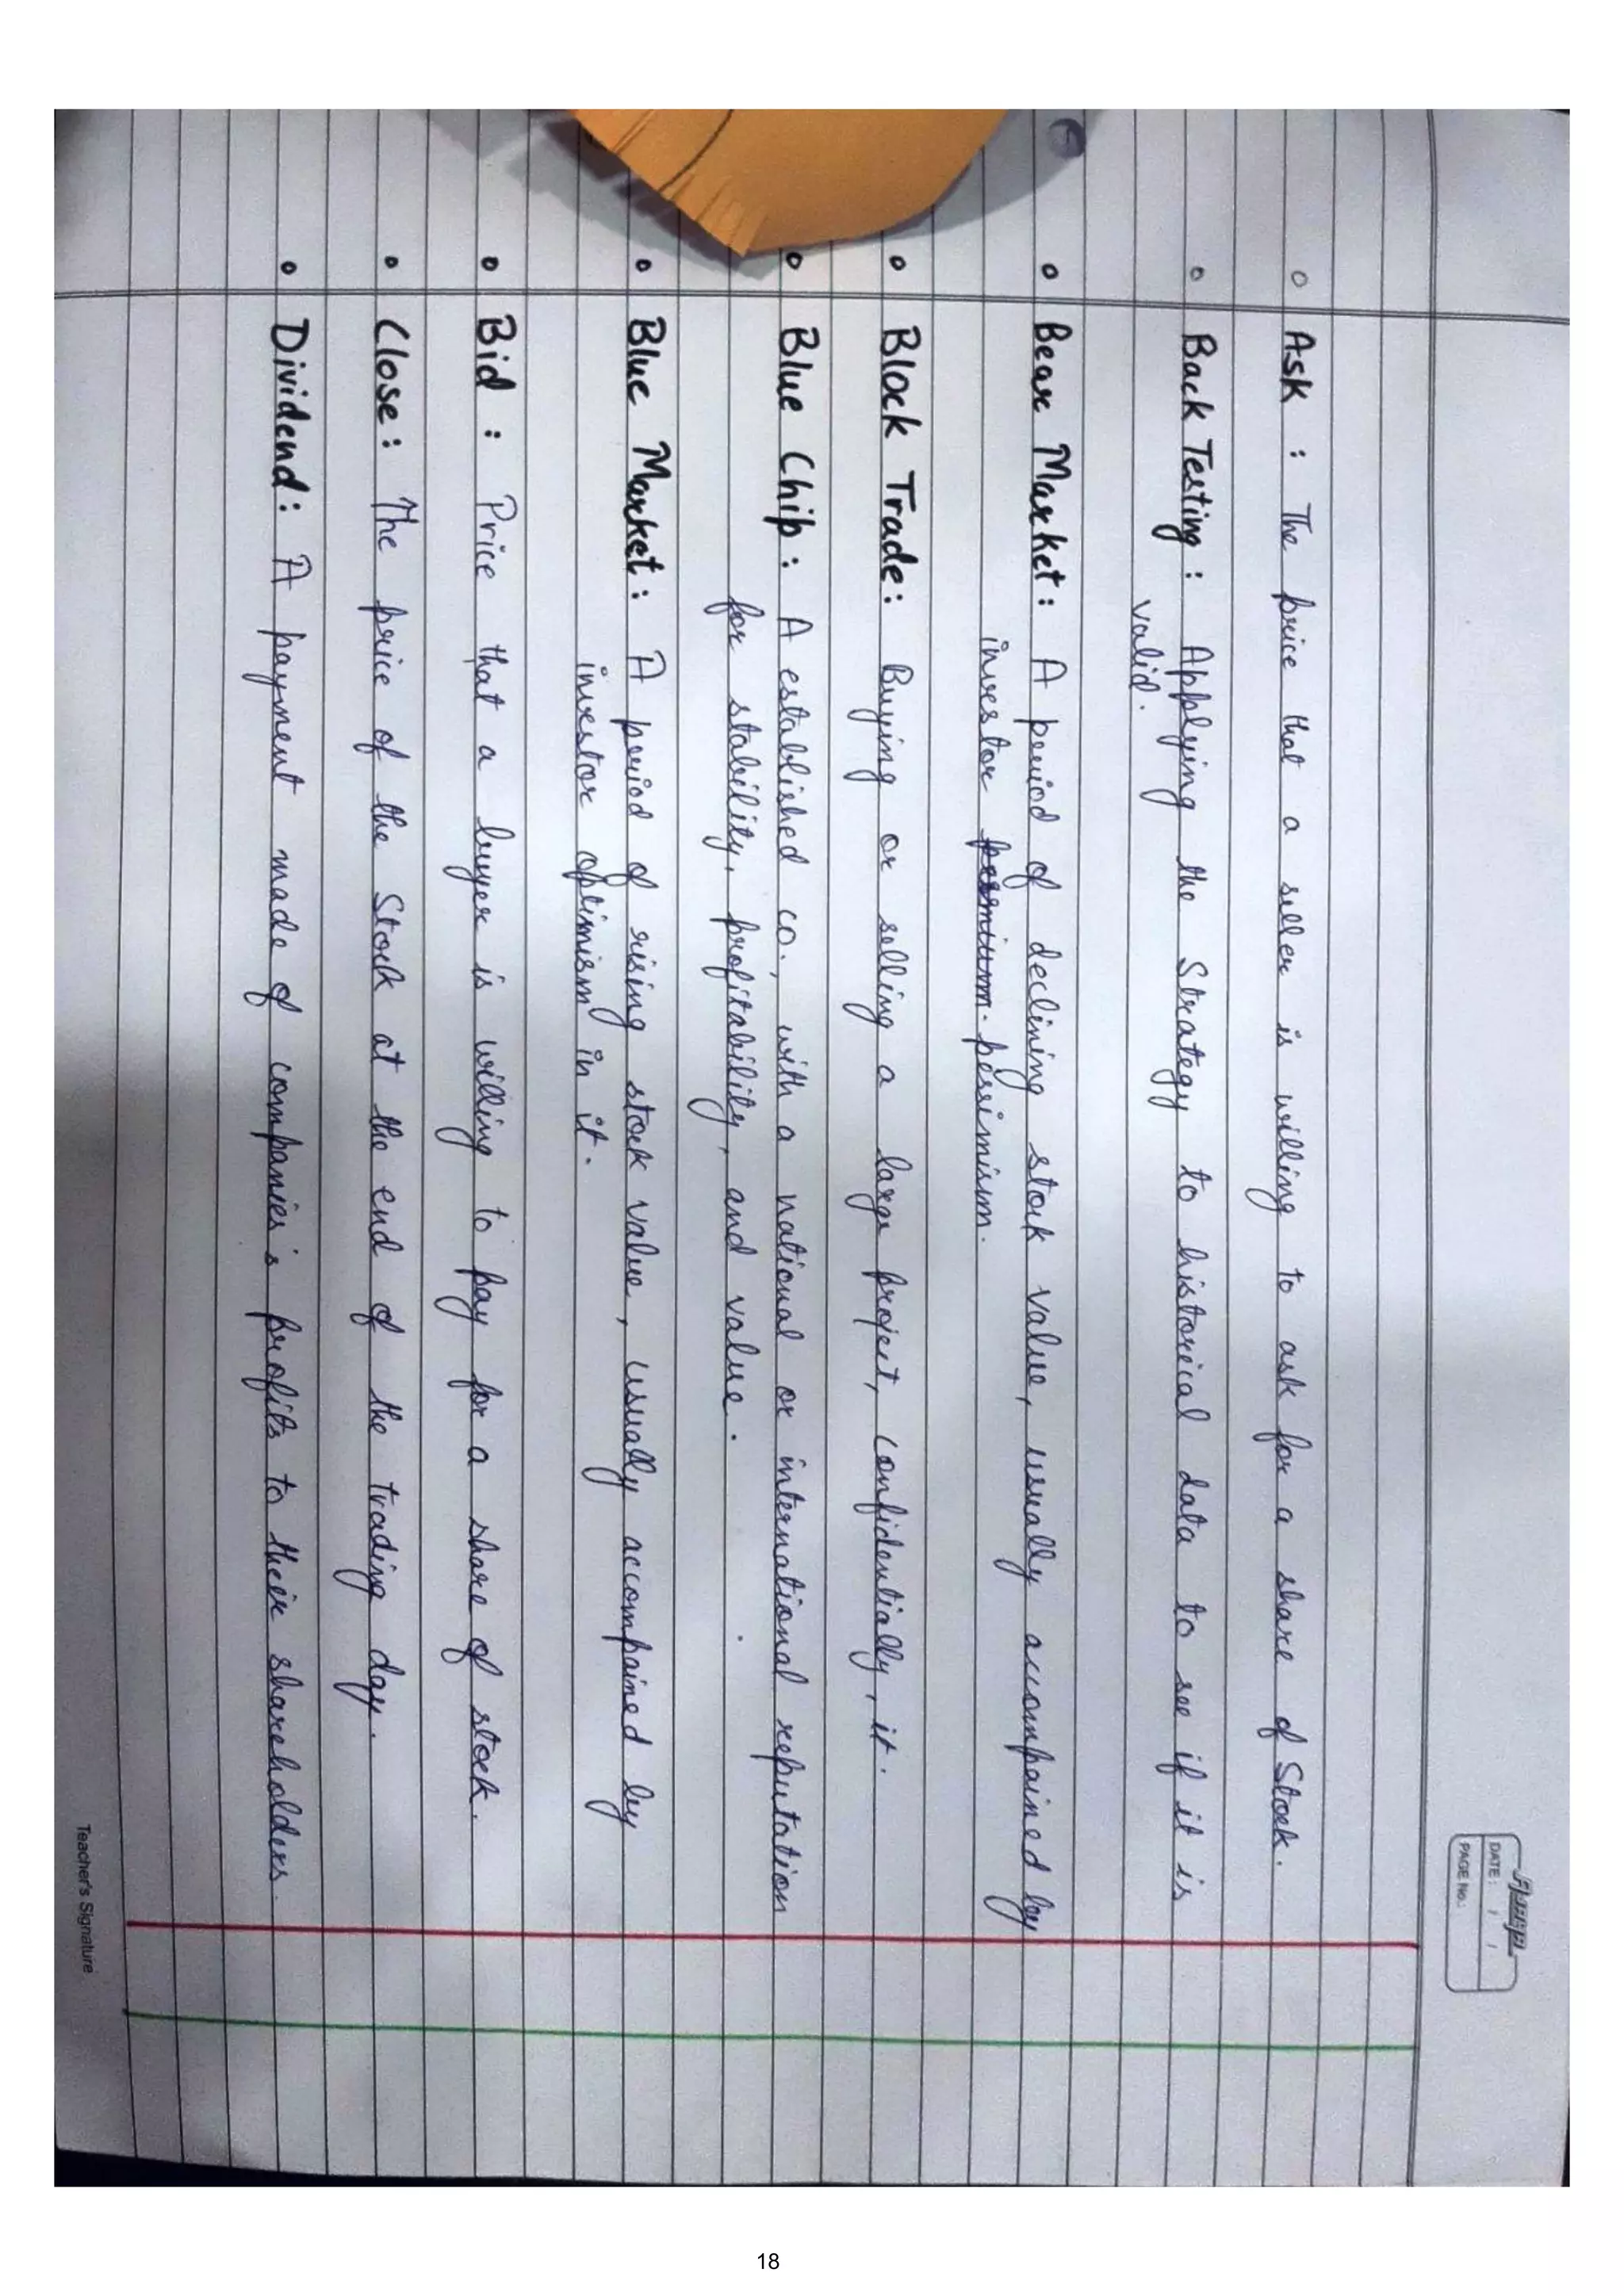 DATE: / /
PAGE No.:
• Ask : The price that a seller is willing to ask for a share of Stock.
• Back Testing : Applying the Strategy to historical data to see if it is
valid.
• Bear Market : A period of declining stock value, usually accompained by
investor permium. pessimism.
• Block Trade : Buying or selling a large project, confidentially, it.
• Blue Chip : A established co., with a national or international reputation
for stability, profitability, and value.
• Blue Market : A period of rising stock value, usually accompained by
investor optimism in it.
• Bid : Price that a buyer is willing to pay for a share of stock.
• Close : The price of the Stock at the end of the trading day.
• Dividend : A payment made of companies's profits to their shareholders.
Teacher's Signature
18